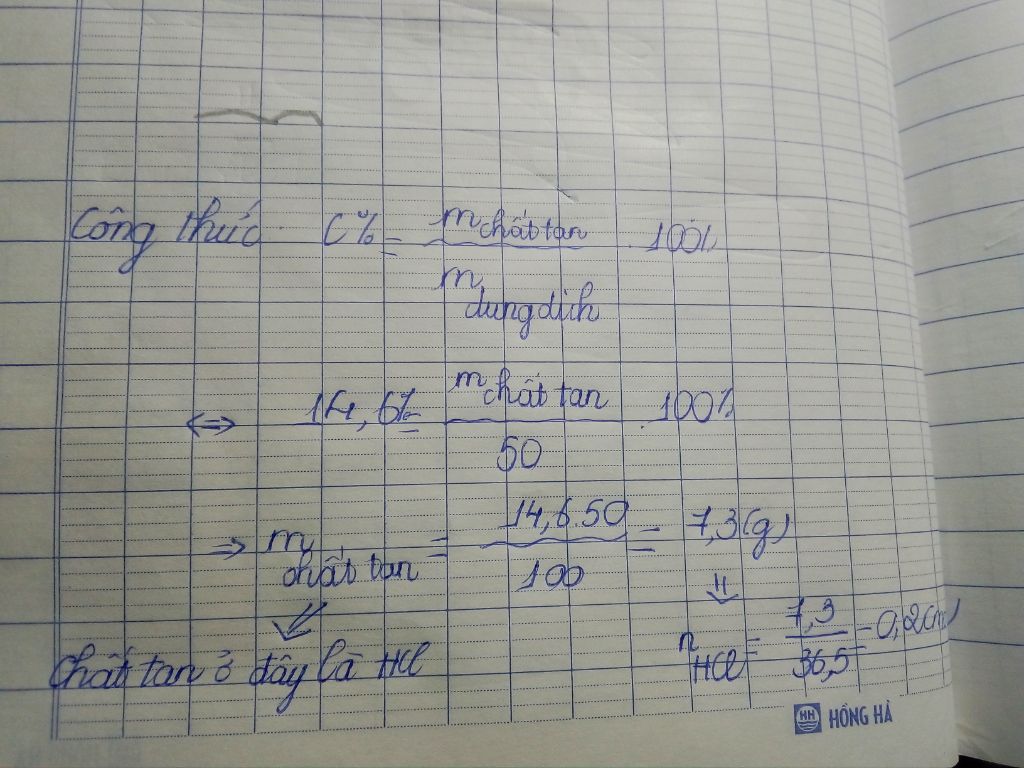 Công thức: C% = m chất tan / m dung dịch . 100%
<=> 14,6% = m chất tan / 50 . 100%
=> m chất tan = 14,6.50 / 100 = 7,3(g)
Chất tan ở đây là HCl
=> n HCl = 7,3 / 36,5 = 0,2(m)
HH HỒNG HÀ